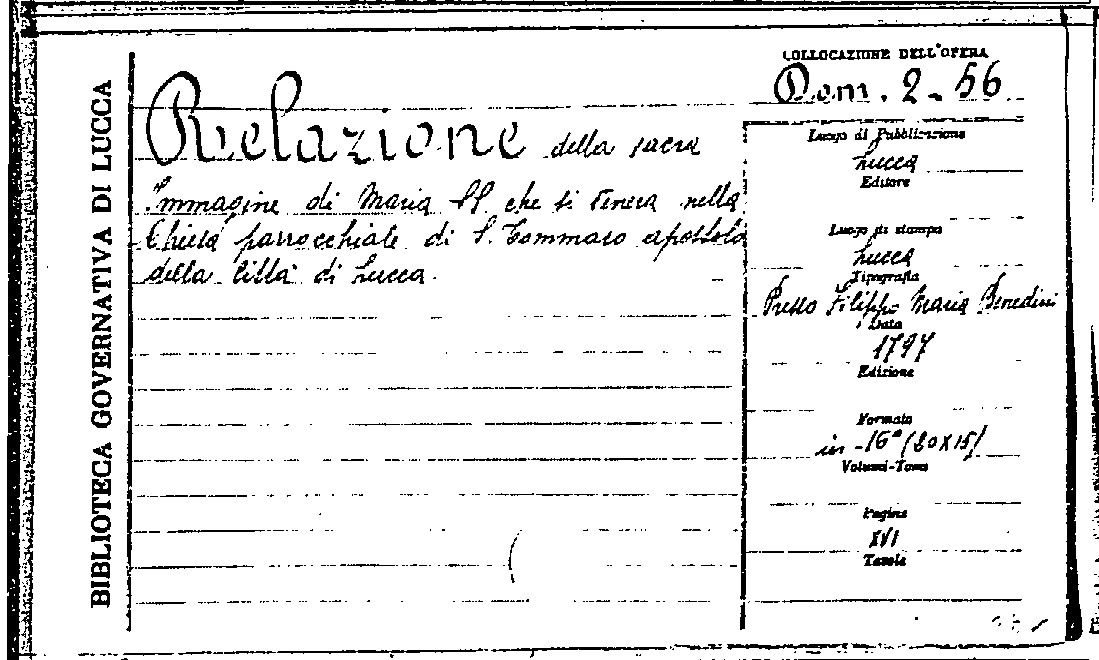 BIBLIOTECA GOVERNATIVA DI LUCCA
Relazione della sacra
Immagine di Maria SS. che si venera nella
Chiesa parrocchiale di S. Tommaso apostolo
della città di Lucca.
COLLOCAZIONE DELL'OPERA
Dom. 2-56
Luogo di Pubblicazione
Lucca
Editore
Luogo di stampa
Lucca
Tipografia
Presso Filippo Maria Benedini
Data
1797
Edizione
Formato
in-16° (20X15)
Volumi-Tomo
Pagine
XVI
Tavole